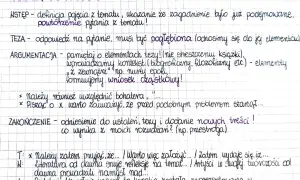 WSTĘP - definicja pojęcia z tematu, wskazanie że zagadnienie było już podejmowane,
powtórzenie pytania z tematu!
TEZA - odpowiedź na pytanie, musi być pogłębiona (odnosimy się do jej elementów)
ARGUMENTACJA - pamiętaj o elementach tezy! (nie streszczamy książki),
wprowadzamy kontekst (biograficzny, filozoficzny etc) - elementy
"z zewnątrz" np. nurty epoki
formułujemy wniosek cząstkowy!
* Należy również uwzględnić bohatera
* Pisząc o warto zauważyć, że przed podobnym problemem stanął
ZAKOŃCZENIE - odniesienie do ustaleń, tezy i dodanie nowych treści!
co wynika z moich rozważań? (np. przestroga)
T * Należy zatem przyjąć, że... / Warto więc założyć... / Zatem wydaje się, iż...
Literatura od dawna snuje refleksje na temat... Artyści
od dawna